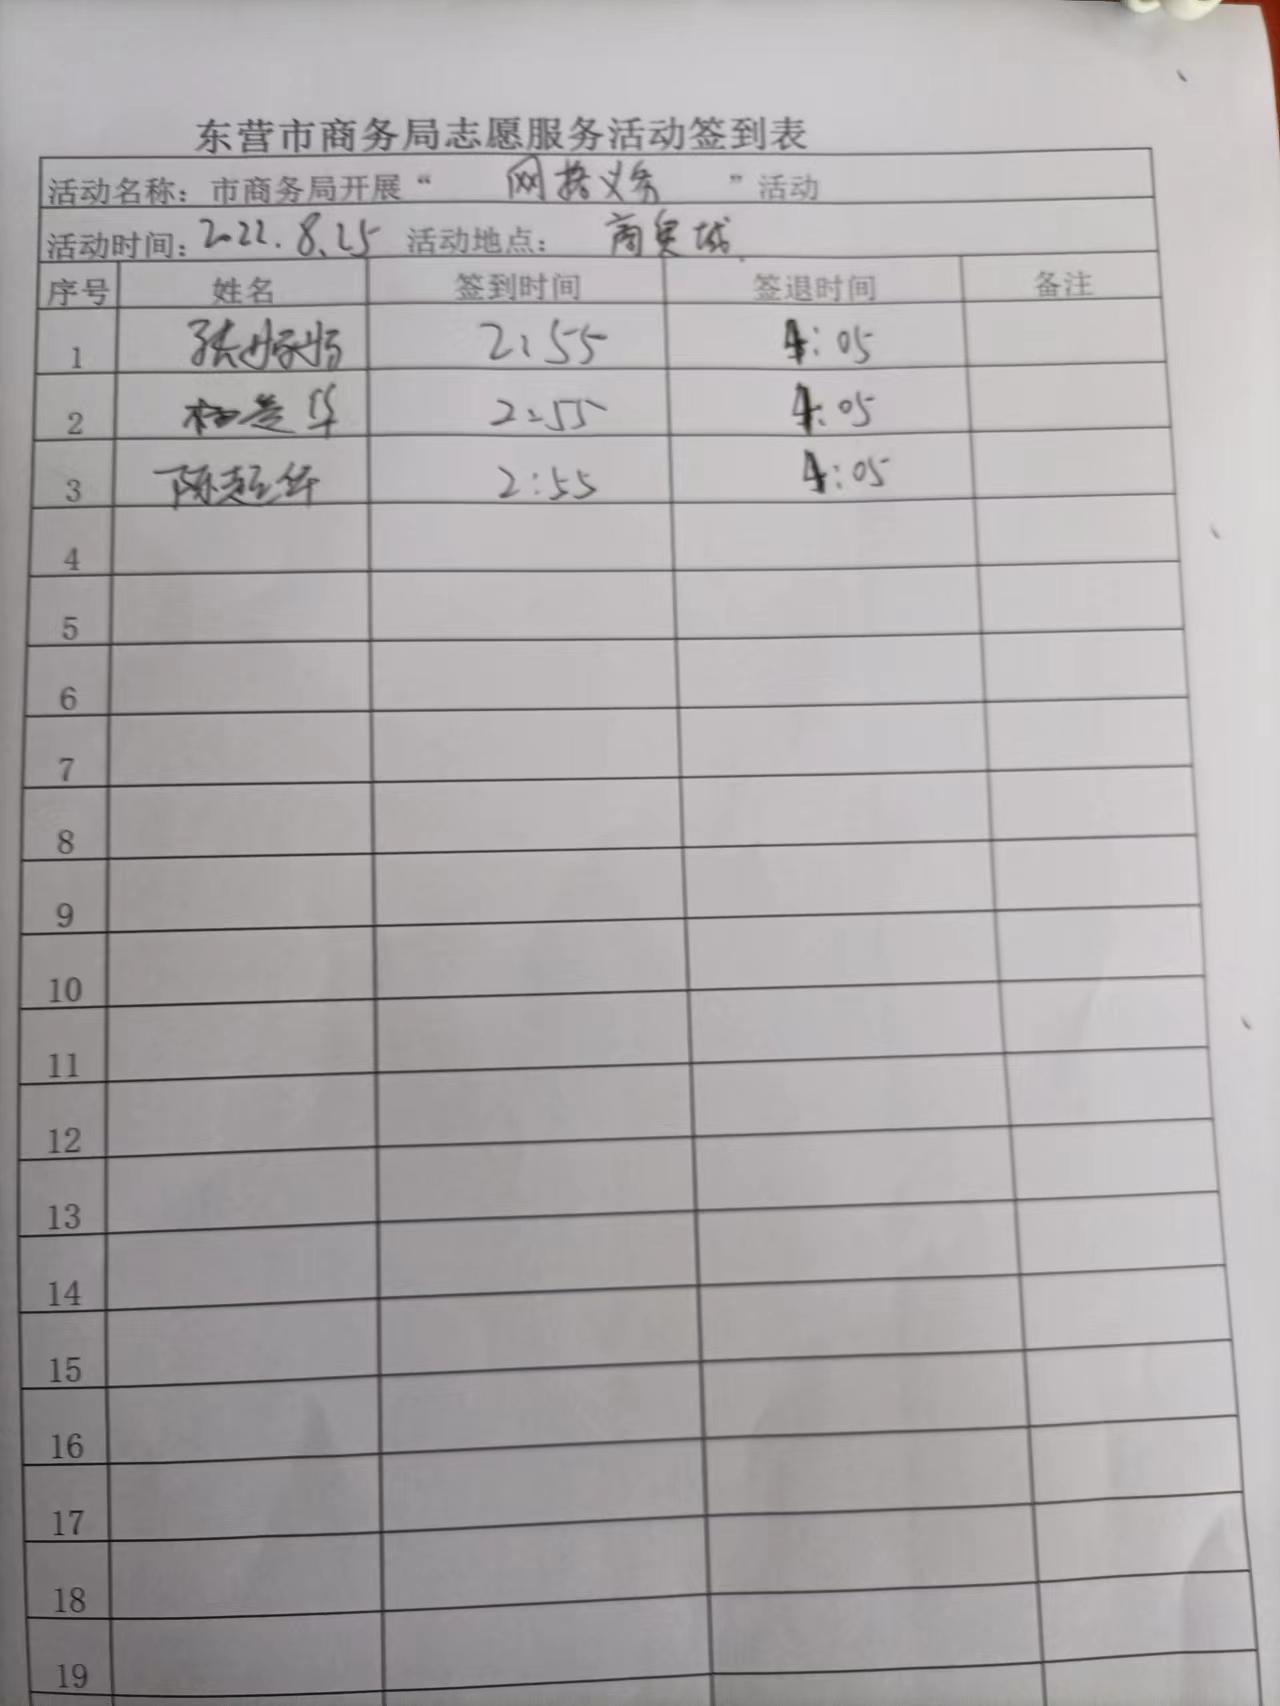 东营市商务局志愿服务活动签到表
活动名称：市商务局开展“ 网格义务 ”活动
活动时间：2022.8.25 活动地点：商贸城
序号 姓名 签到时间 签退时间 备注
1 2:55 4:05
2 2:55 4:05
3 陈超华 2:55 4:05
4
5
6
7
8
9
10
11
12
13
14
15
16
17
18
19